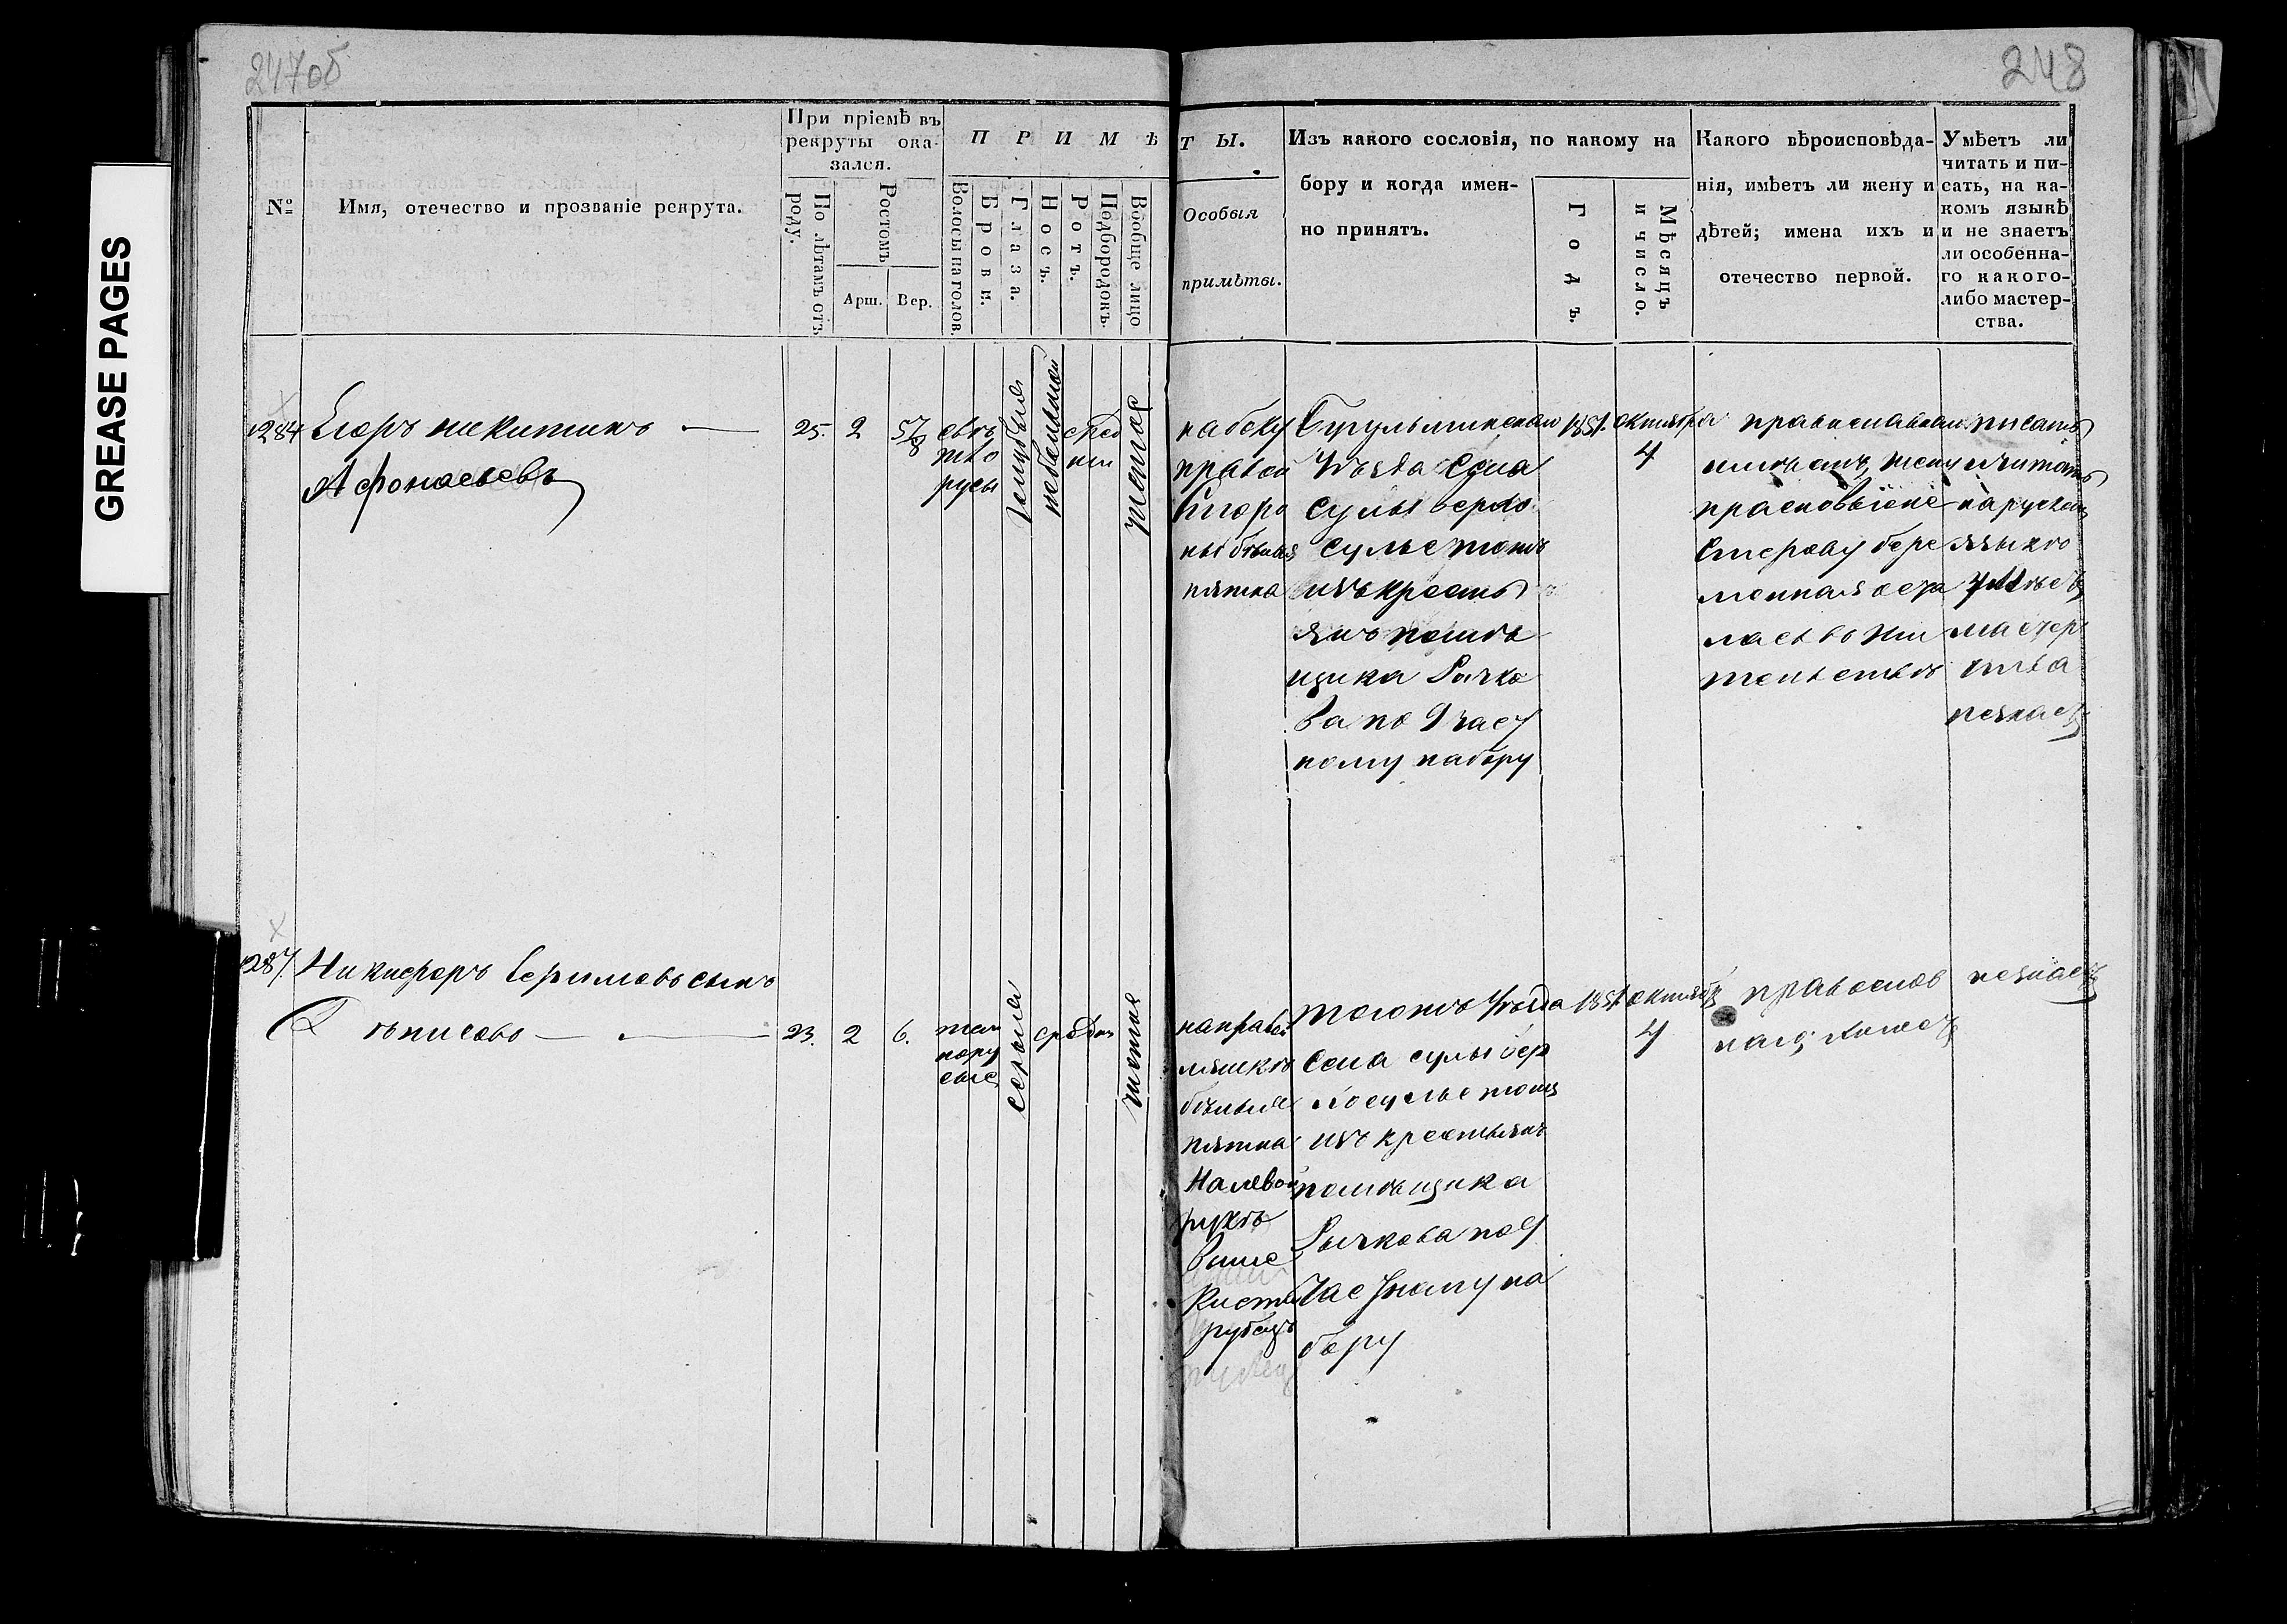 247об
248
GREASE PAGES
№
Имя, отечество и прозваніе рекрута.
При пріемѣ въ
рекруты ока-
зался.
По лѣтамъ отъ
роду.
Ростомъ
Арш.
Вер.
ПРИМѢ
Волосы на голов.
Брови.
Глаза.
Носъ.
Ротъ.
Подбородокъ.
Вообще лицо
ТЫ.
Особыя
примѣты.
Изъ какого сословія, по какому на
бору и когда имен-
но принятъ.
Годъ.
Мѣсяцъ
и число.
Какого вѣроисповѣда-
нія, имѣетъ ли жену и
дѣтей; имена ихъ и
отечество первой.
Умѣетъ ли
читать и пи-
сать, на ка-
комъ языкѣ
и не знаетъ
ли особенна-
го какого-
либо мастер-
ства.
284
Егоръ никитинъ
Афонасьевъ
25.
2
5⅞
свѣт
ло
русы
голубыя
небольшой
сред
нiи
чистое
на боку
правой
стора
ны бѣлыя
пятна
Бугульминскаи
Уѣзда Села
Сулы верхо
сулье тожъ
изъ крестья
янъ помѣ
щика Рычко
ва по 9 част
ному набору
1851.
октября
4
православнаи
имѣетъ жену
прасковью не
мочная оста
лась во жи
тельствѣ
писать
и читать
на руском
языкѣ
умѣетъ
мастер
ства
незнает
287.
Никифоръ Ефимовъ сынъ
23.
2
6.
тем
нору
сые
серыя
средни
чистое
на правой
ляшкѣ
бѣлыя
пятна
На левой
рукѣ
выше
Кисти
рубецъ
Тогожъ Уѣзда
Села сулы вер
хосулье тожъ
изъ крестьянъ
помѣщика
Рычкова по 9
Частному на
бору
1851
октября
4
правослов
наго; холост
незнает